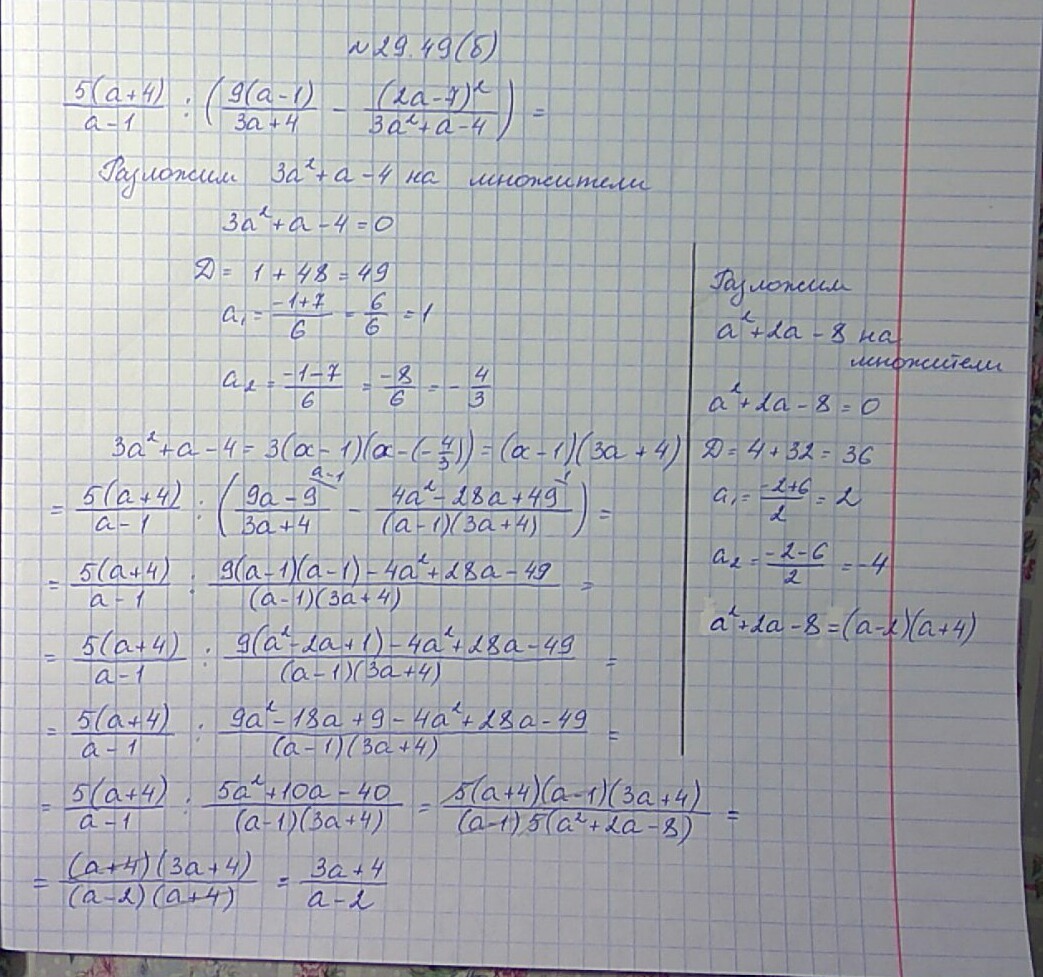 №29.49(б)
5(a+4)/(a-1) : (9(a-1)/(3a+4) - (2a-7)²/(3a²+a-4)) =
Разложим 3a²+a-4 на множители
3a²+a-4=0
D = 1+48=49
a₁ = (-1+7)/6 = 6/6 = 1
a₂ = (-1-7)/6 = -8/6 = -4/3
3a²+a-4 = 3(a-1)(a-(-4/3)) = (a-1)(3a+4)
= 5(a+4)/(a-1) : ((9a-9)/(3a+4) ^(a-1) - (4a²-28a+49)/((a-1)(3a+4)) ^1) =
= 5(a+4)/(a-1) : (9(a-1)(a-1)-4a²+28a-49)/((a-1)(3a+4)) =
= 5(a+4)/(a-1) : (9(a²-2a+1)-4a²+28a-49)/((a-1)(3a+4)) =
= 5(a+4)/(a-1) : (9a²-18a+9-4a²+28a-49)/((a-1)(3a+4)) =
= 5(a+4)/(a-1) : (5a²+10a-40)/((a-1)(3a+4)) = 5(a+4)(a-1)(3a+4)/((a-1)5(a²+2a-8)) =
= (a+4)(3a+4)/((a-2)(a+4)) = (3a+4)/(a-2)
Разложим
a²+2a-8 на
множители
a²+2a-8=0
D=4+32=36
a₁ = (-2+6)/2 = 2
a₂ = (-2-6)/2 = -4
a²+2a-8=(a-2)(a+4)